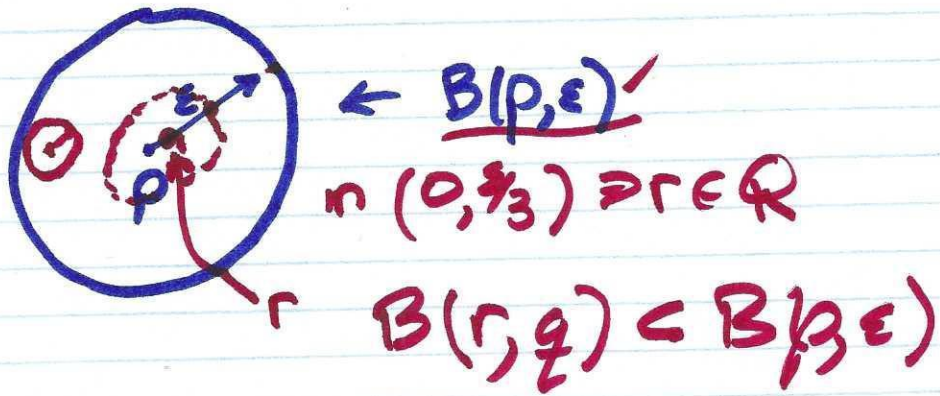 ε
← B(p,ε) ✓
p
in (0, ε/3) ∋ r ∈ Q
r
B(r,q) ⊂ B(p,ε)